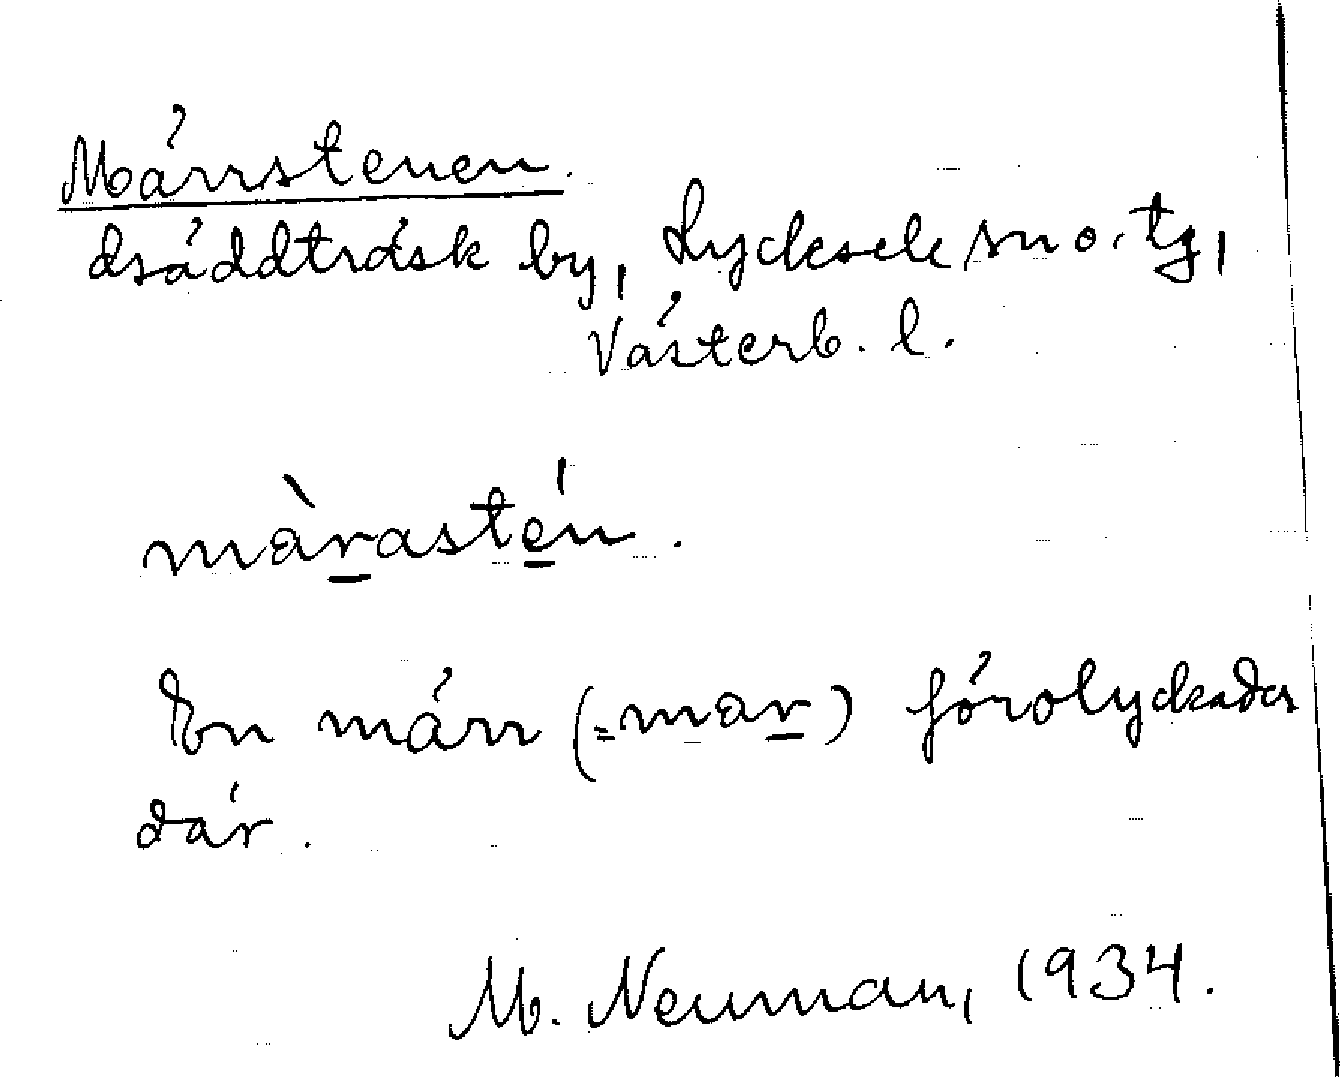 Märrstenen.
Lycksele sn o. tg,
Västerb. l.
màrastén.
En märr (=mar) förolyckades
där.
M. Neuman, 1934.